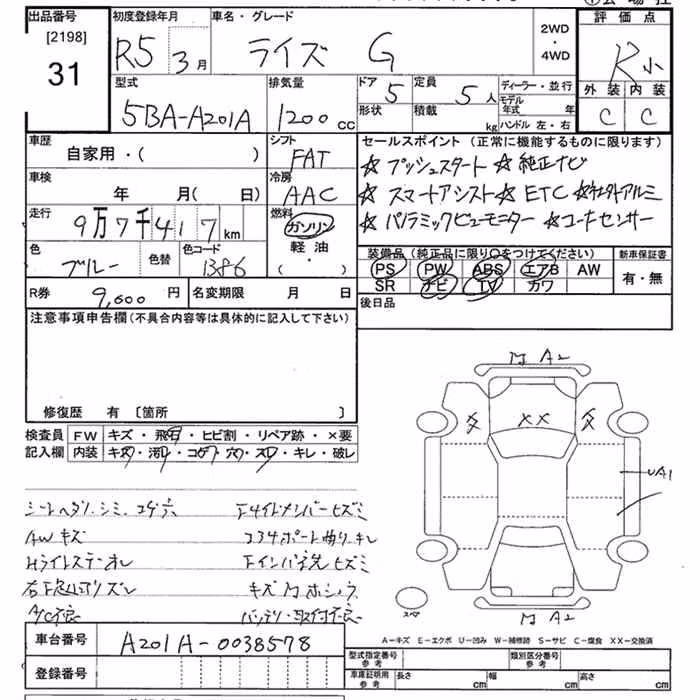 出品番号
[2198]
31
初度登録年月
R5 3月
車名・グレード
ライズ G
2WD
・
4WD
評価点
R 小
外装 内装
C C
型式
5BA-A201A
排気量
1200 cc
ドア 5
形状
定員 5人
積載 kg
ディーラー・並行
モデル年式 年
ハンドル 左・右
車歴
自家用・( )
シフト
FAT
車検
年 月( 日)
冷房
AAC
走行
9万7千417km
燃料
ガソリン
軽油
( ・ )
色
ブルー
色替
色コード
R券 9,600円
名変期限 月 日
セールスポイント (正常に機能するものに限ります)
☆プッシュスタート ☆純正ナビ
☆スマートアシスト ☆ETC ☆社外アルミ
☆パノラミックビューモニター ☆コーナーセンサー
装備品(純正品に限り○をつけてください)
新車保証書
PS PW ABS エアB AW
有・無
SR ナビ TV カワ
後日品
注意事項申告欄(不具合内容等は具体的に記入して下さい)
修復歴 有 〔箇所 〕
検査員
記入欄
FW キズ・飛石・ヒビ割・リペア跡・×要
内装 キズ・汚れ・コゲ・穴・スレ・キレ・破レ
シートヘタリ、シミ、コゲ穴
AWキズ
Hライトステーオレ
A/C不良
下サイドメンバーヒズミ
コアサポート曲り、キレ
Fインパネ先ヒズミ
バッテリー取付不良
A2
XX
UA1
A2
スペア
A-キズ E-エクボ U-凹み W-補修跡 S-サビ C-腐食 XX-交換済
車台番号
A201A-0038578
登録番号
型式指定番号
参考
類別区分番号
参考
車庫証明用
参考
長さ cm
幅 cm
高さ cm